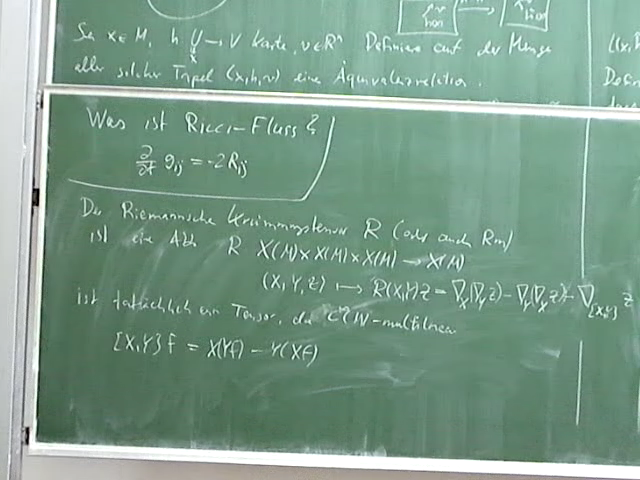 Sei x ∈ M, h U → V Karte, v ∈ ℝⁿ Definiere auf der Menge
x
aller solcher Tripel (x,h,v) eine Äquivalenzrelation.
Was ist Ricci-Fluss?
∂/∂t gij = -2Rij
Der Riemannsche Krümmungstensor R (oder auch Rm)
ist eine Abb R X(M) × X(M) × X(M) → X(M)
(X, Y, Z) ↦ R(X,Y)Z = ∇X(∇YZ) - ∇Y(∇XZ) - ∇[X,Y] Z
ist tatsächlich ein Tensor, da C∞(M)-multilinear
[X,Y]f = X(Yf) - Y(Xf)